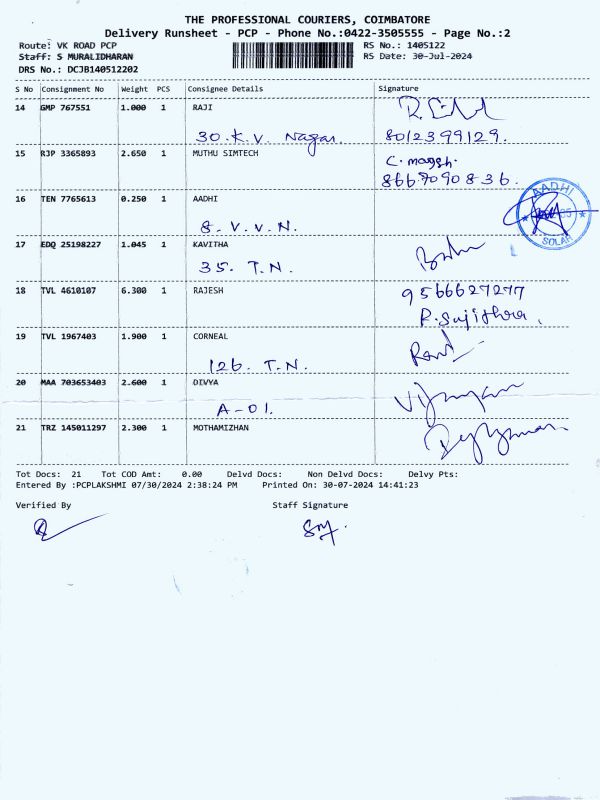 THE PROFESSIONAL COURIERS, COIMBATORE
Delivery Runsheet - PCP - Phone No.:0422-3505555 - Page No.:2
Route: VK ROAD PCP RS No.: 1405122
Staff: S MURALIDHARAN RS Date: 30-Jul-2024
DRS No.: DCJB140512202
S No Consignment No Weight PCS Consignee Details Signature
14 GMP 767551 1.000 1 RAJI
30. K.V. Nagar. 8012399129.
15 RJP 3365893 2.650 1 MUTHU SIMTECH
8667090836.
16 TEN 7765613 0.250 1 AADHI
8. V. V. N.
AADHI
SOLAR
17 EDQ 25198227 1.045 1 KAVITHA
35. T.N.
18 TVL 4610107 6.300 1 RAJESH 9566627277
R. Sujithra.
19 TVL 1967403 1.900 1 CORNEAL
126. T.N.
20 MAA 703653403 2.600 1 DIVYA
A-01.
21 TRZ 145011297 2.300 1 MOTHAMIZHAN
Tot Docs: 21 Tot COD Amt: 0.00 Delvd Docs: Non Delvd Docs: Delvy Pts:
Entered By :PCPLAKSHMI 07/30/2024 2:38:24 PM Printed On: 30-07-2024 14:41:23
Verified By Staff Signature